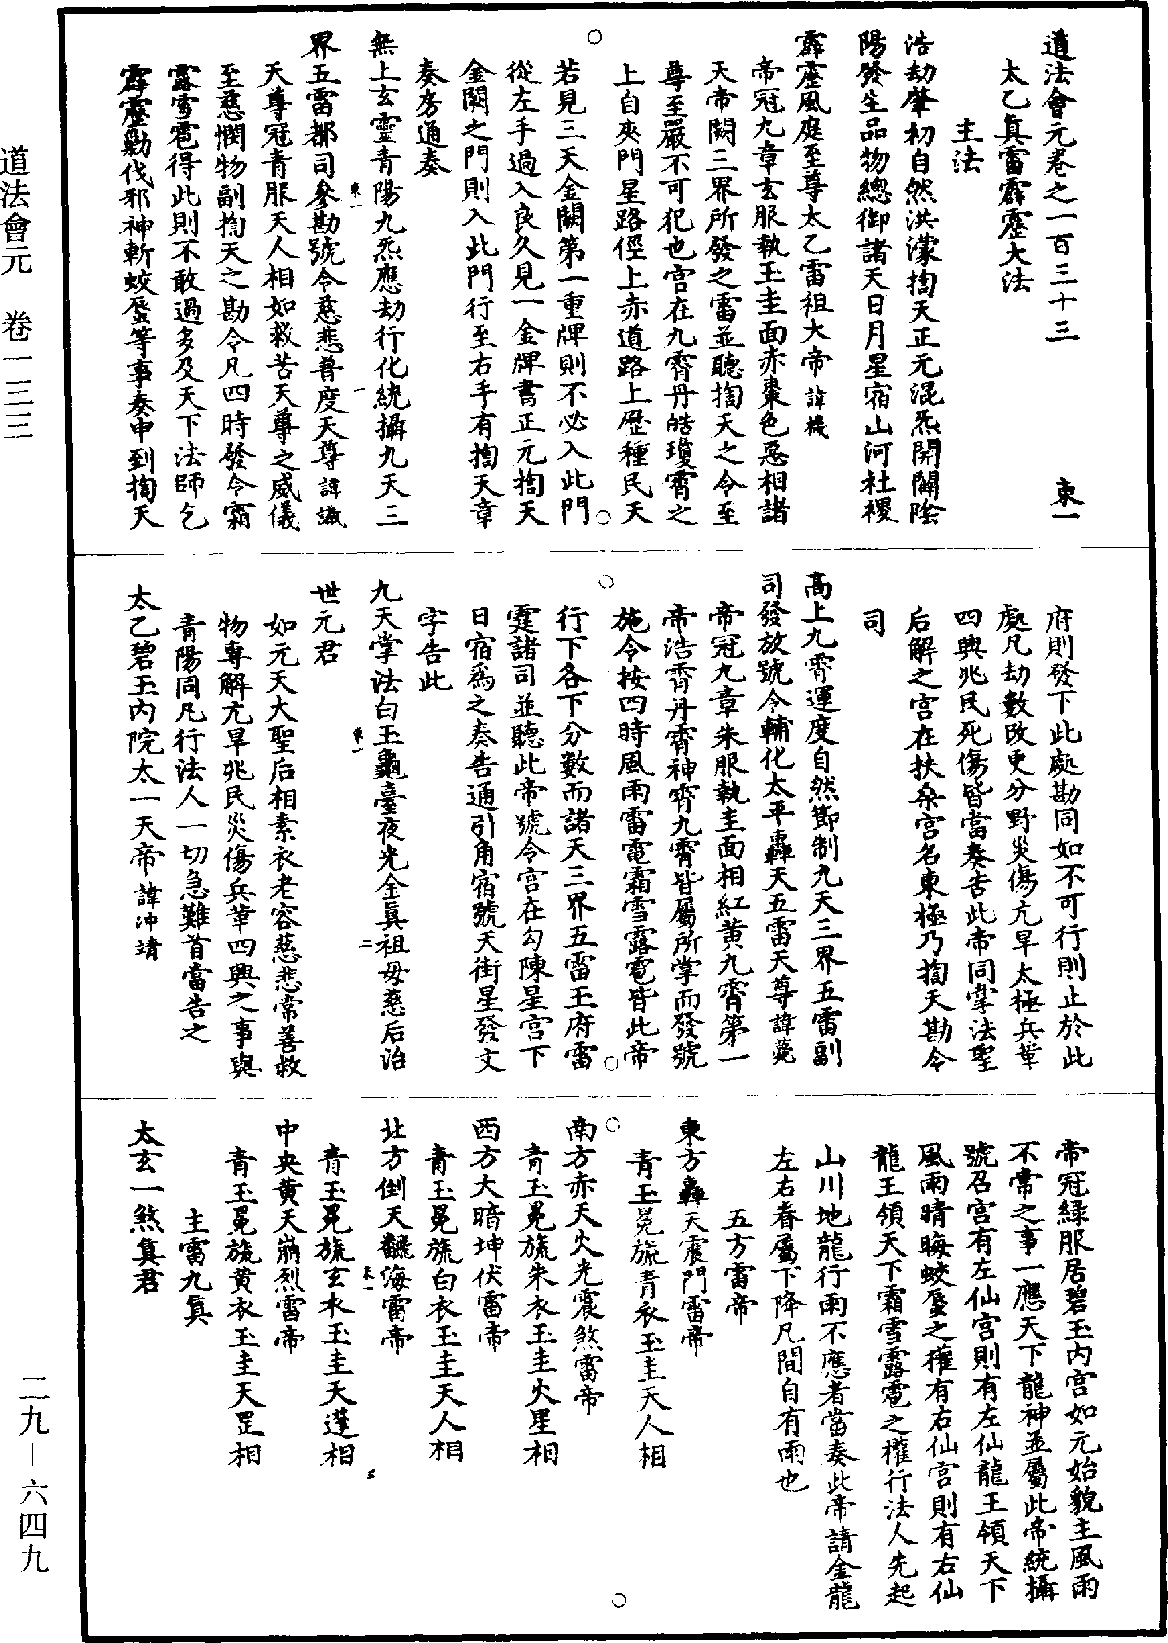 道法會元卷之一百三十三　東一
太乙眞雷霹靂大法
主法
浩劫肇初自然洪濛揈天正元混炁開闢陰
陽發生品物總御諸天日月星宿山河社稷
霹靂風庭至尊太乙雷祖大帝諱機
帝冠九章玄服執玉圭面赤棗色惡相諸
天帝闕三界所發之雷並聽揈天之令至
尊至嚴不可犯也宮在九霄丹皓瓊霄之
上自夾門星路徑上赤道路上歷種民天
若見三天金闕第一重牌則不必入此門
從左手過入良久見一金牌書正元揈天
金闕之門則入此門行至右手有揈天章
奏房通奏
無上玄靈青陽九炁應劫行化統攝九天三
界五雷都司參勘號令慈悲普度天尊諱諷
天尊冠青服天人相如救苦天尊之威儀
至慈憫物副揈天之勘令凡四時發令霜
露雪雹得此則不敢過多及天下法師乞
霹靂勦伐邪神斬蛟蜃等事奏申到揈天
府則發下此處勘同如不可行則止於此
處凡劫數改更分野災傷亢旱太極兵革
四興兆民死傷皆當奏告此帝同掌法聖
后解之宮在扶桑宮名東極乃揈天勘令
司
高上九霄運度自然節制九天三界五雷副
司發放號令輔化太平轟天五雷天尊諱
帝冠九章朱服執圭面相紅黃九霄第一
帝浩霄丹霄神霄九霄皆屬所掌而發號
施令按四時風雨雷電霜雪露雹皆此帝
行下各下分數而諸天三界五雷王府雷
霆諸司並聽此帝號令宮在勾陳星宮下
日宿爲之奏告通引角宿號天街星發文
字告此
九天掌法白玉龜臺夜光金眞祖母慈后治
世元君
如元天大聖后相素衣老容慈悲常善救
物專解亢旱兆民災傷兵革四興之事與
青陽同凡行法人一切急難首當告之
太乙碧玉內院太一天帝諱冲靖
帝冠綠服居碧玉內宮如元始貌主風雨
不常之事一應天下龍神並屬此帝統攝
號召宮有左仙宮則有左仙龍王領天下
風雨晴晦蛟蜃之權有右仙宮則有右仙
龍王領天下霜雪露雹之權行法人先起
山川地龍行雨不應者當奏此帝請金龍
左右眷屬下降凡間自有雨也
五方雷帝
東方轟天震門雷帝
青玉冕旒青衣玉圭天人相
南方赤天火光震煞雷帝
青玉冕旒朱衣玉圭火星相
西方大暗坤伏雷帝
青玉冕旒白衣玉圭天人相
北方倒天翻海雷帝
青玉冕旒玄衣玉圭天蓬相
中央黃天崩烈雷帝
青玉冕旒黃衣玉圭天罡相
主雷九眞
太玄一煞眞君
道法會元　卷一三三
二九—六四九